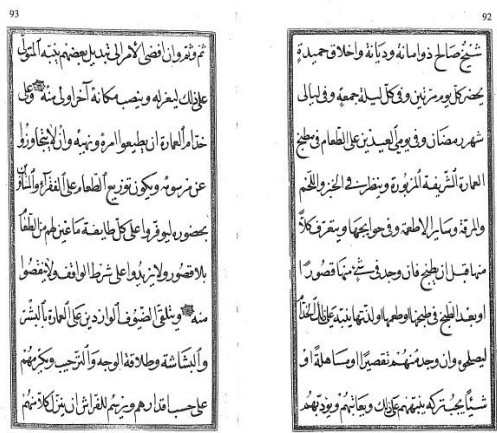 92
شيخ صالح ذو امانة وديانة واخلاق حميدة
يحضر كل يوم مرتين وفى كل ليلة جمعة وفى ليالى
شهر رمضان وفى يومى العيدين على الطعام فى مطبخ
العمارة الشريفة المزبورة وينظر فى الخبز واللحم
والمرقة وساير الاطعمة وفى حوايجها ويتعرف كلا
منها قبل ان يطبخ فان وجد فى شئ منها قصورا
او بعد الطبخ فى طبخها وطعمها ولذتها ينبه على
ليصلحه وان وجد منهم تقصيرا او مساهلة او
شيأ يجب تركه ينبههم على ذلك ويعاتبهم ويؤدبهم
93
ثم وثم وان افضى الامر الى تبديل بعضهم ينبه المتولى
على ذلك ليعزله وينصب مكانه آخر اولى منه وعلى
خدام العمارة ان يطيعوا امره ونهيه وان لا يتجاوزوا
عن مرسومه ويكون توزيع الطعام على الفقراء
بحضوره ليوفروا على كل طايفة ما عين لهم من الطعام
بلا قصور ولا يزيدوا على شرط الواقف ولا ينقصوا
منه ويتلقى الضيوف الواردين على العمارة بالبشر
والبشاشة وطلاقة الوجه والترحيب ويكرمهم
على حسب اقدارهم ويرسم للفراش ان ينزل كلا منهم